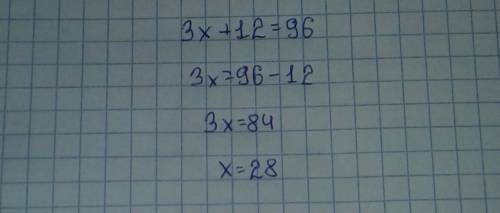 3x+12=96
3x=96-12
3x=84
x=28